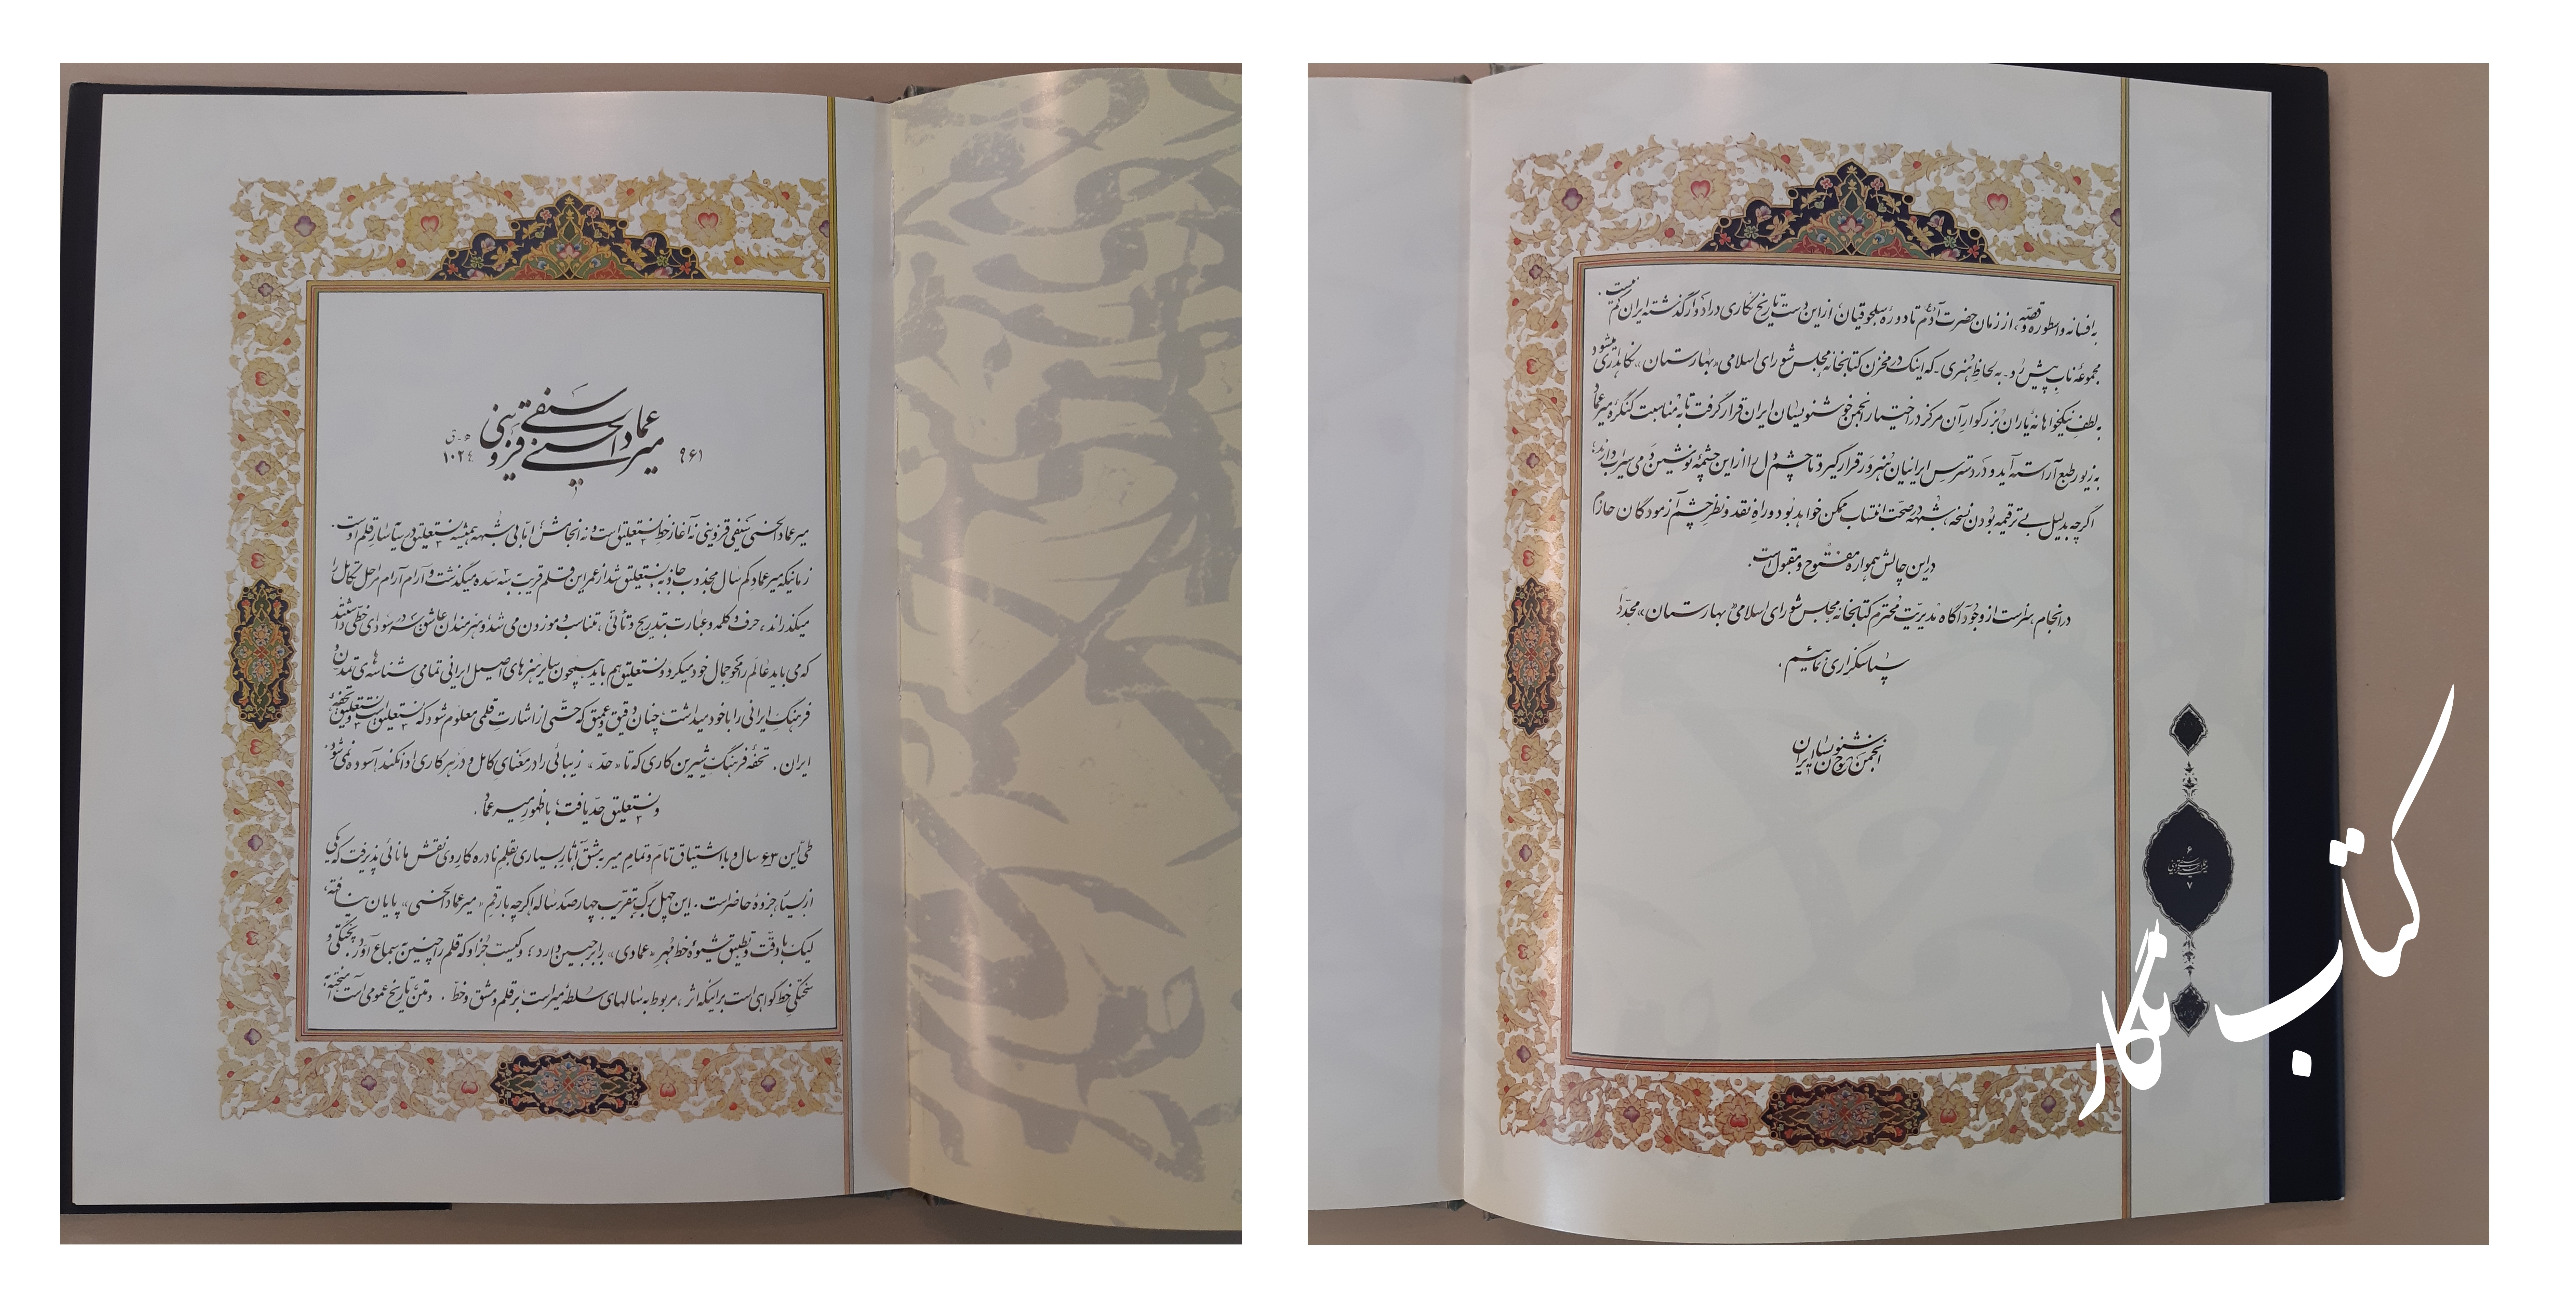 میرعماد الحسنی سیفی قزوینی
۹۶۱
۱۰۲۴ ه‍.ق
میرعماد الحسنی سیفی قزوینی نه آغاز خط نستعلیق است و نه انجامش امّا بی شبهه همیشه نستعلیق در سیتاسار قلم اوست.
زمانیکه میرعماد کم سال مجذوب جاذبه نستعلیق شد از عمر این قلم قریب سه سده میگذشت و آرام آرام مراحل تکامل را
میگذراند، حرف و کلمه و عبارت بتدریج و تأنّی، متناسب و موزون می شد و هنرمندان عاشق سر در سودای خطّی داشتند
که می باید عالم را محو جمال خود میکرد و نستعلیق هم باید همچون سایر هنرهای اصیل ایرانی تمامی شناسه های تمدن و
فرهنگ ایرانی را با خود میداشت، چنان دقیق و عمیق که حتّی از اشارت قلمی معلوم شود که نستعلیق است و نستعلیق تحفهٔ
ایران. تحفهٔ فرهنگ شیرین کاری که تا «حدّ» زیبائی را در معنای کامل و در هر کاری ادا نکند آسوده نمی شود.
و نستعلیق حدّ یافت، با ظهور میرعماد.
طیّ این ۶۳ سال و با اشتیاق تام و تمام میر به مشق آثار بسیاری بقلم نادره کار وی نقش مانائی پذیرفت که یکی
از بسیار جزوهٔ حاضر است. این چهل برگ بتقریب چهارصد ساله اگرچه با رقم «میرعماد الحسنی» پایان نیافته،
لیک با دقّت و تطبیق شیوهٔ خط مُهرِ «عمادی» را بر جبین دارد؛ و کیست جُز او که قلم را چنین به سماع آورد پختگی و
سختگی خط گواهی است بر اینکه اثر، مربوط به سالهای سلطهٔ میر است بر قلم و مشق و خطّ. و متن تاریخ عمومی است آمیخته
به افسانه و اسطوره و قصّه، از زمان حضرت آدم تا دورهٔ سلجوقیان از این دست تاریخ نگاری در ادوار گذشته ایران کم نیست.
مجموعهٔ ناب پیش رُو - به لحاظِ هُنری - که اینک در مخزن کتابخانه مجلس شورای اسلامی «بهارستان» نگاهداری میشود
به لطفِ نیکخواهانه یاران بزرگوار آن مرکز در اختیار انجمن خوشنویسان ایران قرار گرفت تا به مناسبت کنگره میرعماد
به زیور طبع آراسته آید و در دسترس ایرانیان هنرور قرار گیرد تا چشم و دل را از این چشمهٔ نوشین دَمی سیراب دارند؛
اگرچه بدلیل بی ترقیمه بودن نسخه، شبهه در صحّت انتساب ممکن خواهد بود و راهِ نقد و نظر چشم آزمودگان حازم
در این چالش همواره مفتوح و مقبول است.
در انجام، سزاست از وجود آگاه مدیریّت محترم کتابخانه مجلس شورای اسلامی «بهارستان» مجدّداً
سپاسگزاری نمائیم.
انجمن خوشنویسان ایران
۶
میرعماد الحسنی سیفی قزوینی
۷
کتاب نگار